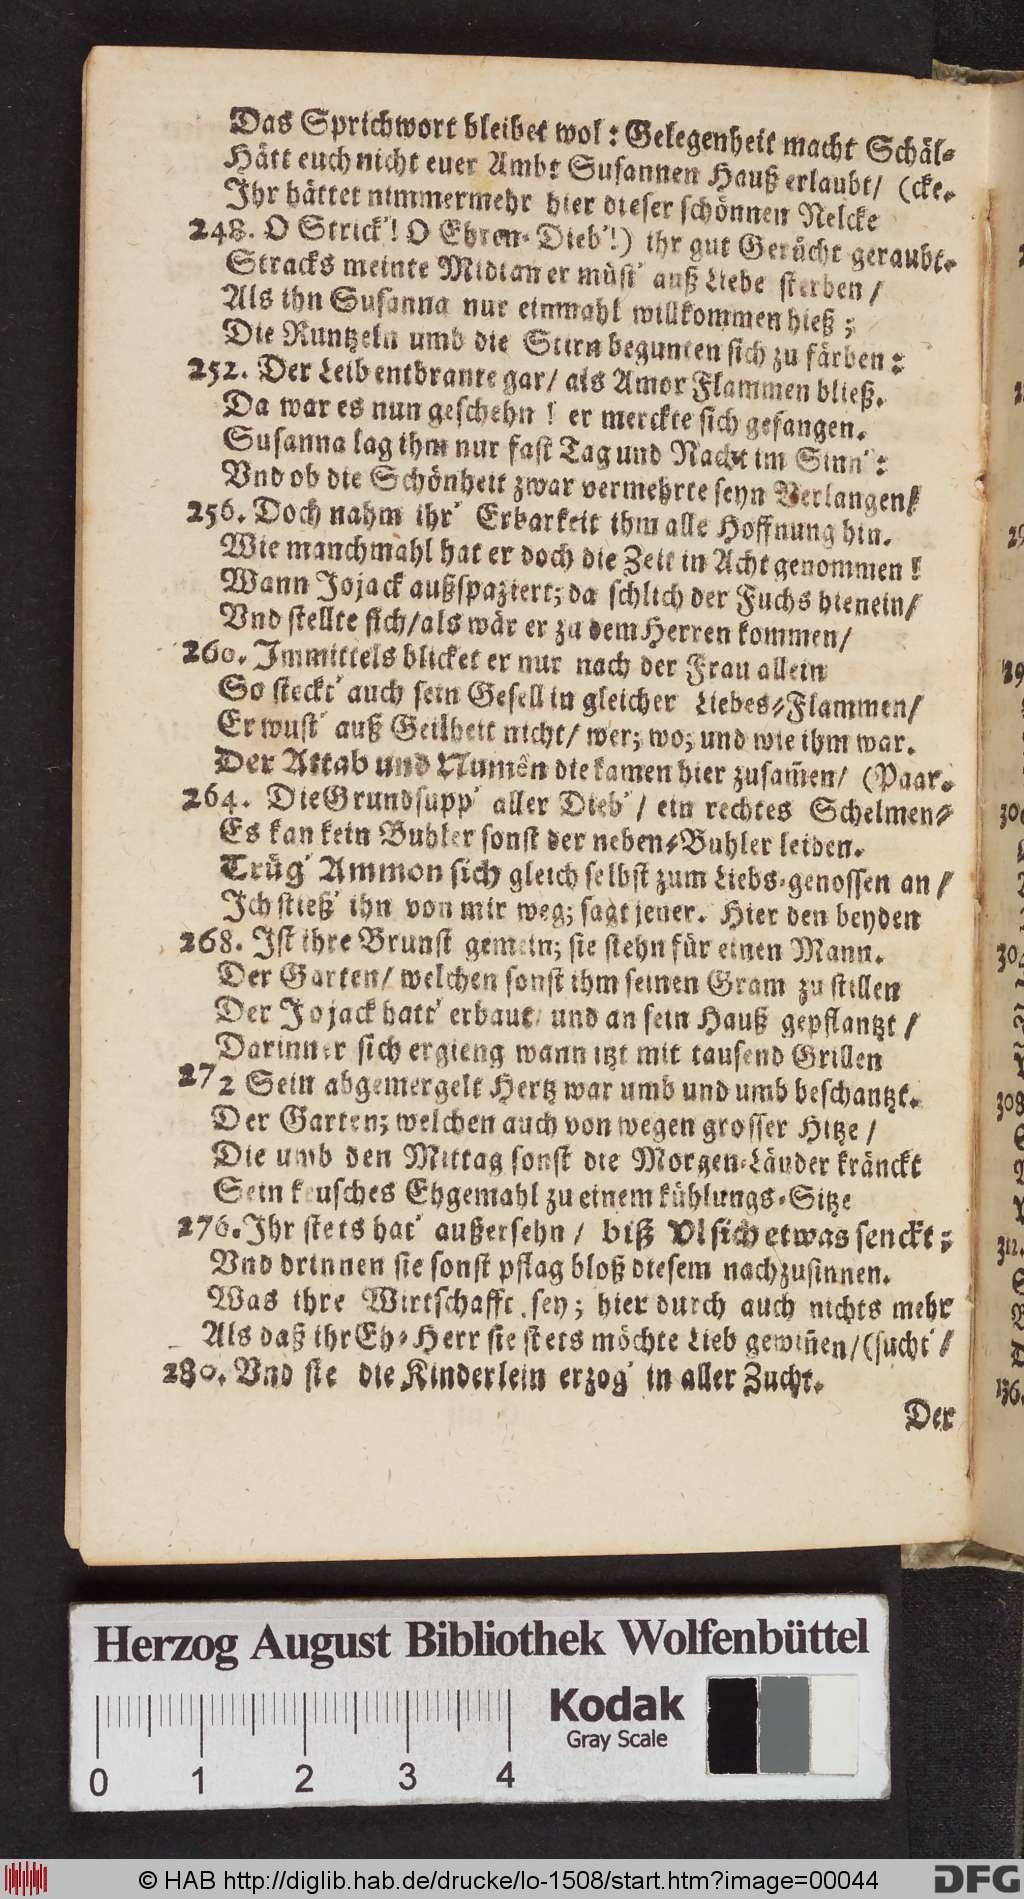 Das Sprichwort bleibet wol: Gelegenheit macht Schäl-
Hätt euch nicht euer Ambt Susannen Hauß erlaubt/ (cke.
Ihr hättet nimmermehr hier dieser schönnen Nelcke
248. O Strick'! O Ehren-Dieb'!) ihr gut Gerücht geraubt.
Stracks meinte Midian er müst' auß Liebe sterben/
Als ihn Susanna nur einmahl willkommen hieß;
Die Runtzeln umb die Stirn begunten sich zu färben:
252. Der Leib entbrante gar/ als Amor Flammen bließ.
Da war es nun geschehn! er merckte sich gefangen.
Susanna lag ihm nur fast Tag und Nacht im Sinn':
Vnd ob die Schönheit zwar vermehrte seyn Verlangen/
256. Doch nahm ihr' Erbarkeit ihm alle Hoffnung hin.
Wie manchmahl hat er doch die Zeit in Acht genommen!
Wann Jojack außspaziert; da schlich der Fuchs hienein/
Vnd stellte sich/als wär er zu dem Herren kommen/
260. Immittels blicket er nur nach der Frau allein
So steckt' auch sein Gesell in gleicher Liebes-Flammen/
Er wust' auß Geilheit nicht/ wer; wo; und wie ihm war.
Der Attab und Numên die kamen hier zusam̃en/ (Paar.
264. Die Grundsupp' aller Dieb'/ ein rechtes Schelmen-
Es kan kein Buhler sonst der neben-Buhler leiden.
Trüg' Ammon sich gleich selbst zum Liebs-genossen an/
Ich stieß' ihn von mir weg; sagt jener. Hier den beyden
268. Ist ihre Brunst gemein; sie stehn für einen Mann.
Der Garten/ welchen sonst ihm seinen Gram zu stillen
Der Jojack hatt' erbaut/ und an sein Hauß gepflantzt/
Darinner sich ergieng wann itzt mit tausend Grillen
272 Sein abgemergelt Hertz war umb und umb beschantzt.
Der Garten; welchen auch von wegen grosser Hitze/
Die umb den Mittag sonst die Morgen-Länder kränckt
Sein keusches Ehgemahl zu einem kühlungs-Sitze
276. Ihr stets hat' außersehn/ biß Vl sich etwas senckt;
Vnd drinnen sie sonst pflag bloß diesem nachzusinnen.
Was ihre Wirtschafft sey; hier durch auch nichts mehr
Als daß ihr Eh-Herr sie stets möchte Lieb gewiñen/ (sucht'/
280. Vnd sie die Kinderlein erzog' in aller Zucht.
Der
Herzog August Bibliothek Wolfenbüttel
Kodak
Gray Scale
0 1 2 3 4
© HAB http://diglib.hab.de/drucke/lo-1508/start.htm?image=00044
DFG